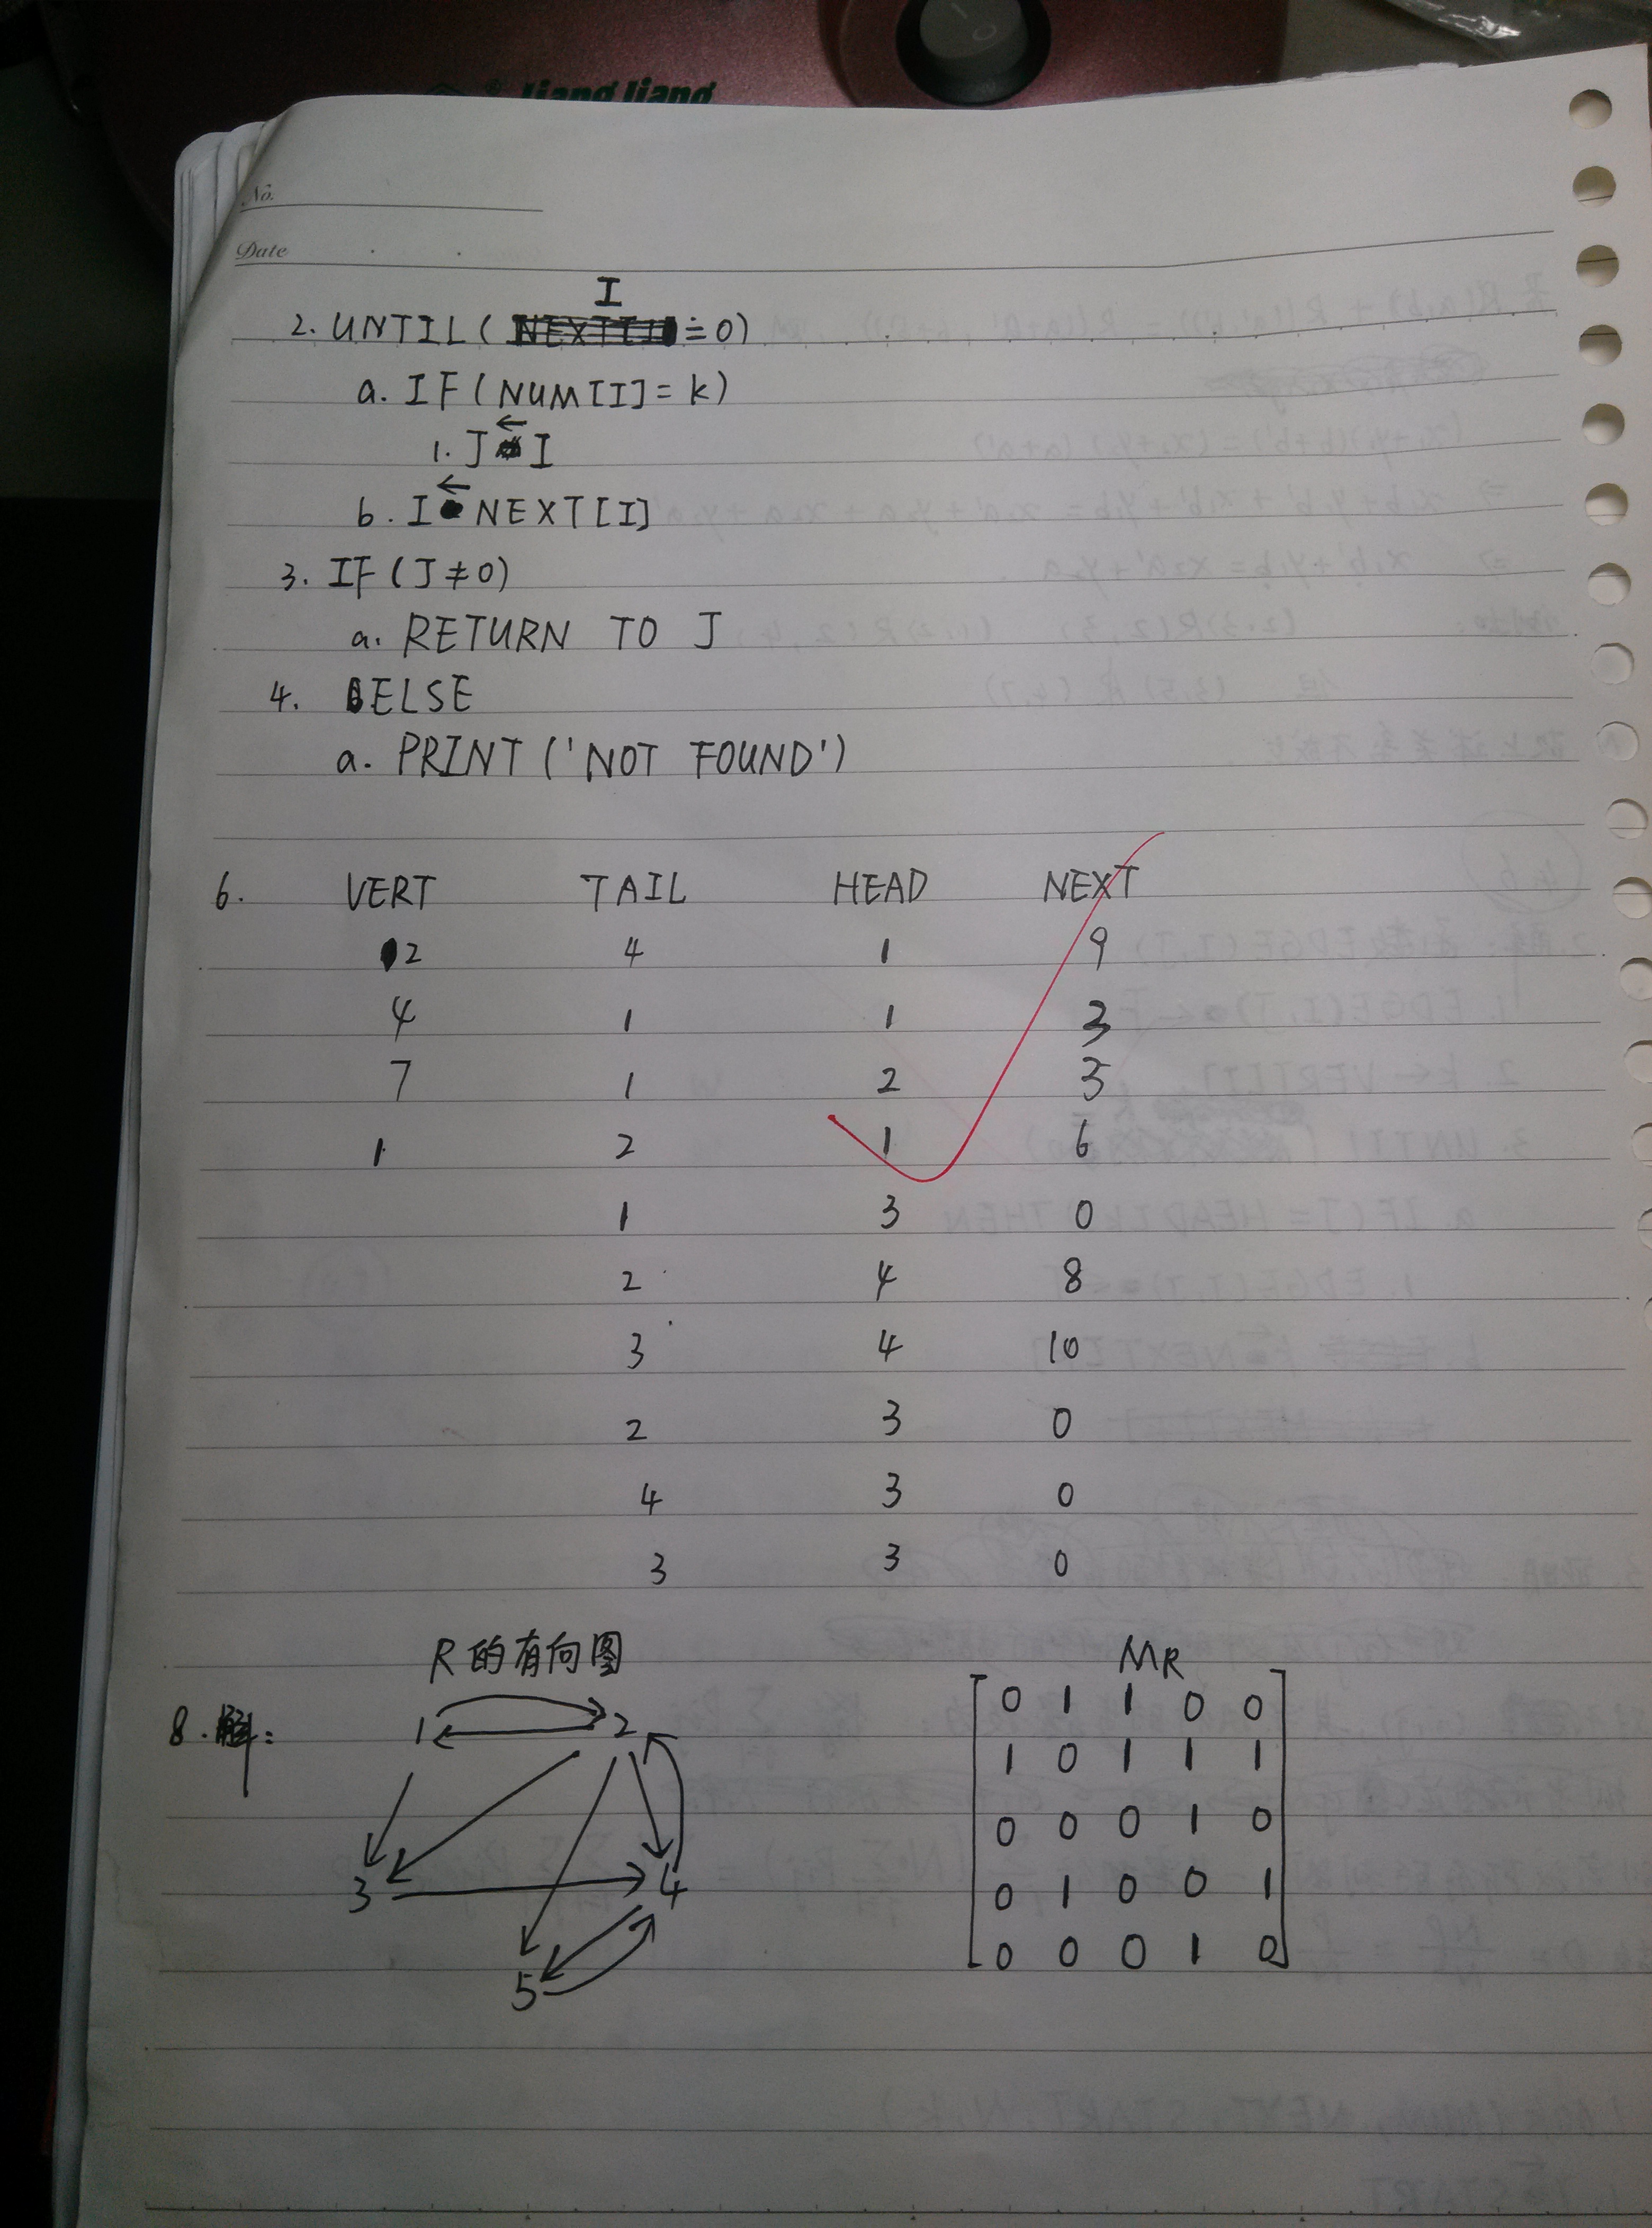 Liang Liang
No.
Date
I
2. UNTIL ( =0)
a. IF (NUM[I]= k)
1. J ← I
b. I ← NEXT[I]
3. IF (J ≠ 0)
a. RETURN TO J
4. ELSE
a. PRINT ('NOT FOUND')
6. VERT TAIL HEAD NEXT
2 4 1 9
4 1 1 3
7 1 2 5
1 2 1 6
1 3 0
2 4 8
3 4 10
2 3 0
4 3 0
3 3 0
R的有向图 MR
8. 解: 1 2
3 4
5
0 1 1 0 0
1 0 1 1 1
0 0 0 1 0
0 1 0 0 1
0 0 0 1 0